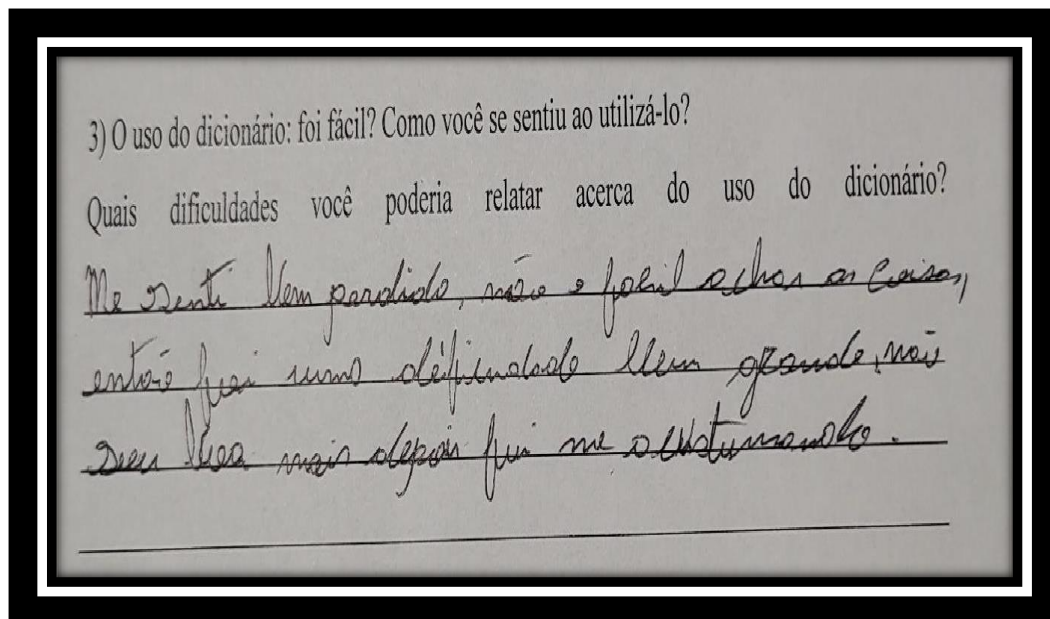 3) O uso do dicionário: foi fácil? Como você se sentiu ao utilizá-lo?
Quais dificuldades você poderia relatar acerca do uso do dicionário?
Me senti bem perdido, não e facil achar as coisas,
então foi uma dificuldade bem grande, não
mais depois fui me acustumando.